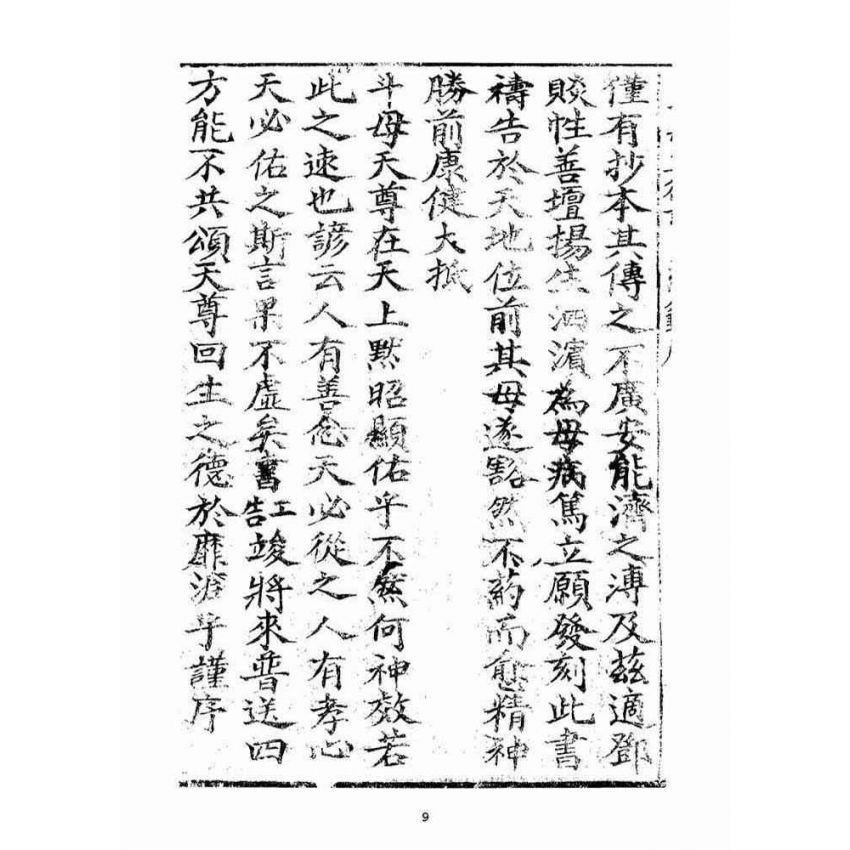 僅有抄本其傳之不廣安能濟之溥及茲適鄧
賧性善壇揚生泗濱為母病篤立願發刻此書
禱告於天地位前其母遂豁然不葯而愈精神
勝前康健大抵
斗母天尊在天上默昭顯佑乎不然何神效若
此之速也諺云人有善念天必從之人有孝心
天必佑之斯言果不虛矣書工告竣將來普送四
方能不共頌天尊回生之德於靡涯乎謹序
9